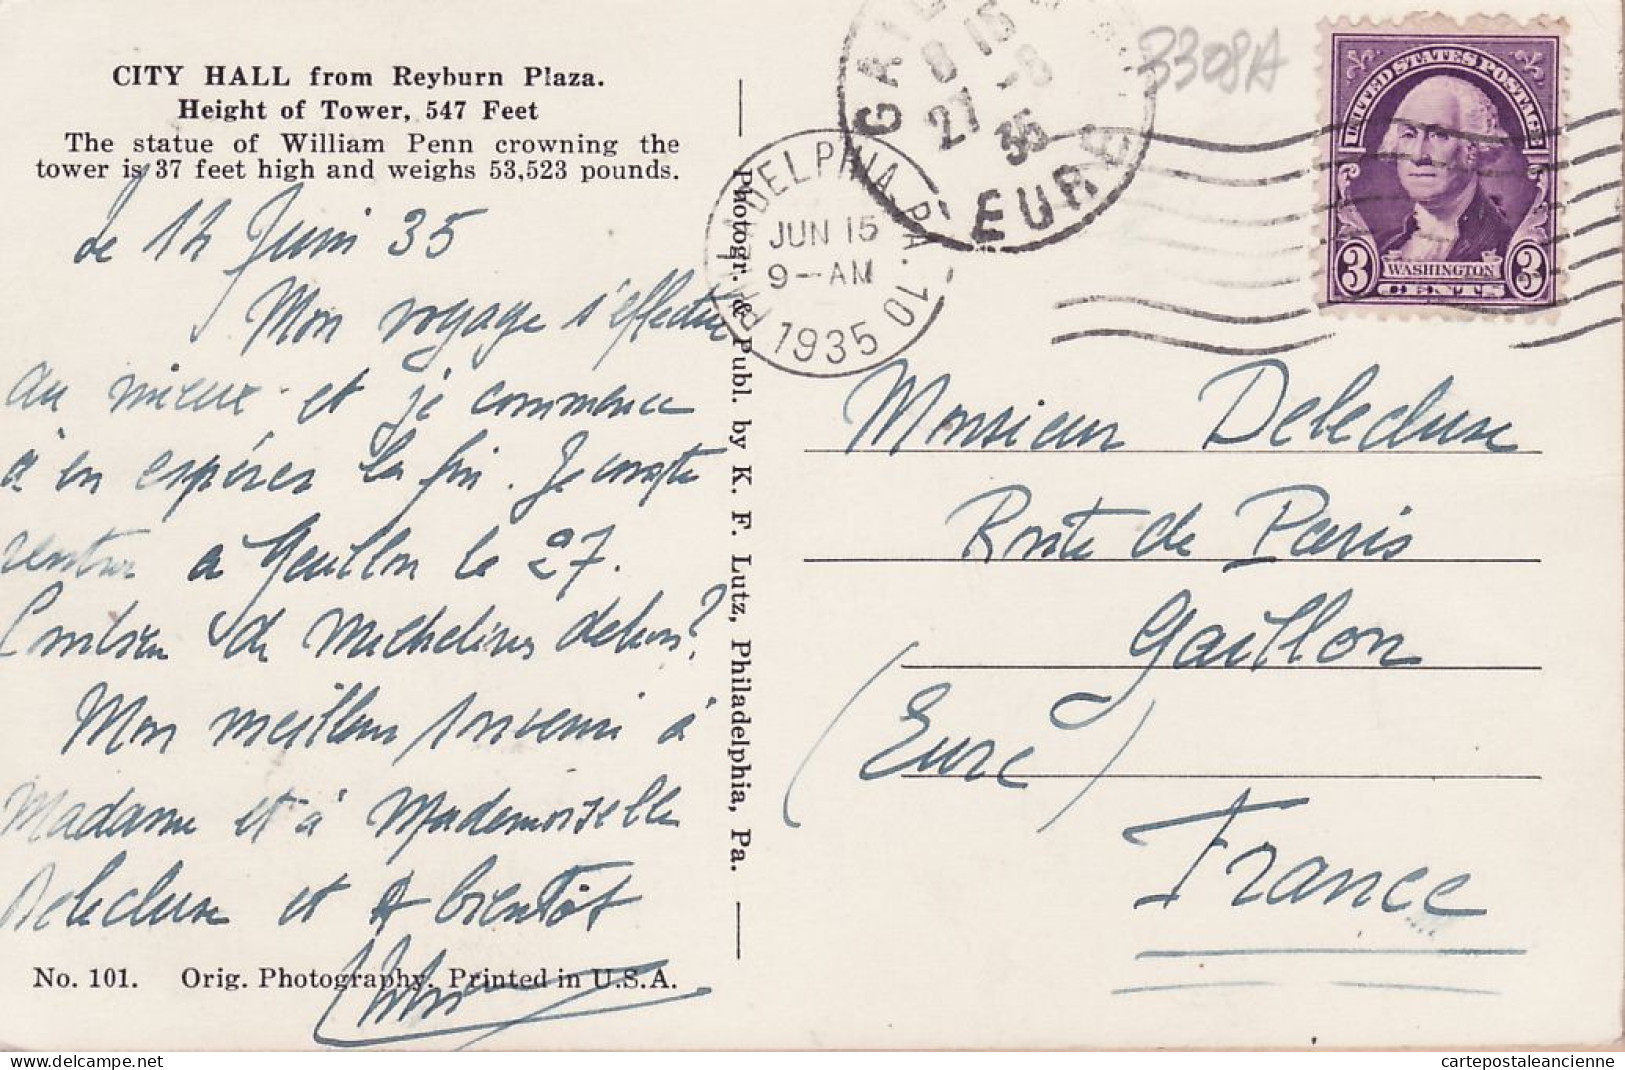 CITY HALL from Reyburn Plaza.
Height of Tower, 547 Feet
The statue of William Penn crowning the
tower is 37 feet high and weighs 53,523 pounds.
le 14 Juin 35
Mon voyage s'effectue
au mieux et je commence
à en espérer la fin. Je compte
rentrer à Gaillon le 27.
Combien de Michelines dehors?
Mon meilleur souvenir à
Madame et à Mademoiselle
Delecluse et A bientôt
No. 101. Orig. Photography. Printed in U.S.A.
Photogr. & Publ. by K. F. Lutz, Philadelphia, Pa.
PHILADELPHIA, PA. 10
JUN 15
9-AM
1935
8 15
27 -6
35
EURE
3308A
UNITED STATES POSTAGE
3 WASHINGTON 3
CENTS
Monsieur Delecluse
Route de Paris
Gaillon
(Eure)
France
cartepostaleancienne